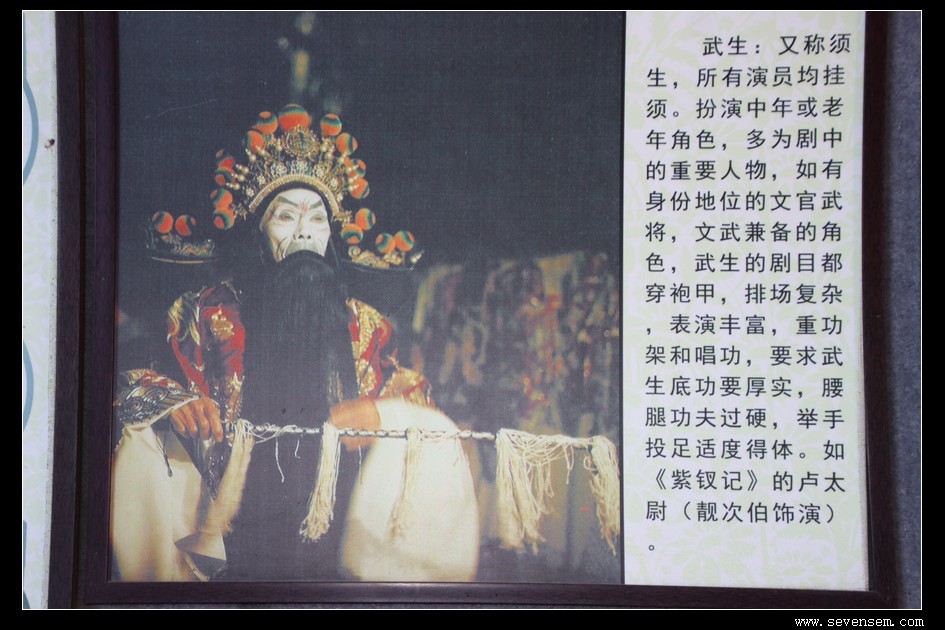 武生：又称须
生，所有演员均挂
须。扮演中年或老
年角色，多为剧中
的重要人物，如有
身份地位的文官武
将，文武兼备的角
色，武生的剧目都
穿袍甲，排场复杂
，表演丰富，重功
架和唱功，要求武
生底功要厚实，腰
腿功夫过硬，举手
投足适度得体。如
《紫钗记》的卢太
尉（靓次伯饰演）
。
www.sevensem.com